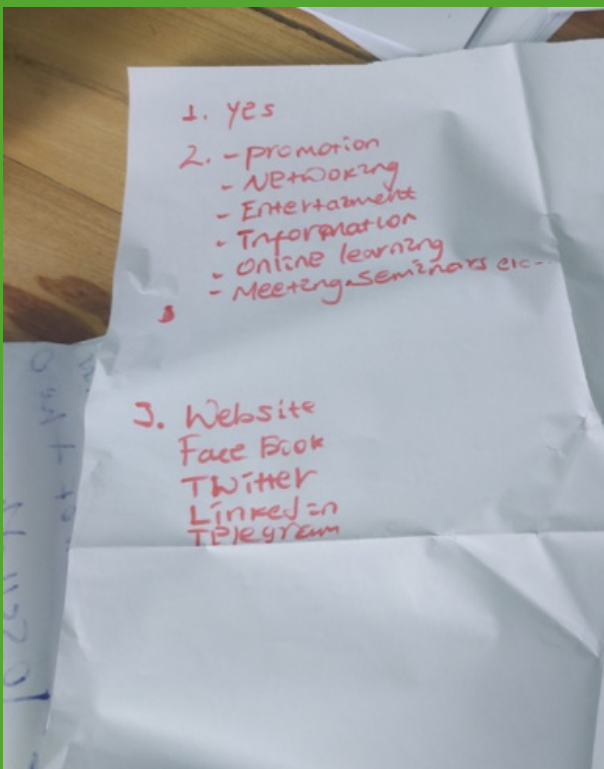 1. Yes
2. - Promotion
- Netwoking
- Entertainment
- Information
- Online learning
- Meeting Seminars etc...
3. Website
Face Book
Twitter
Linked in
Telegram